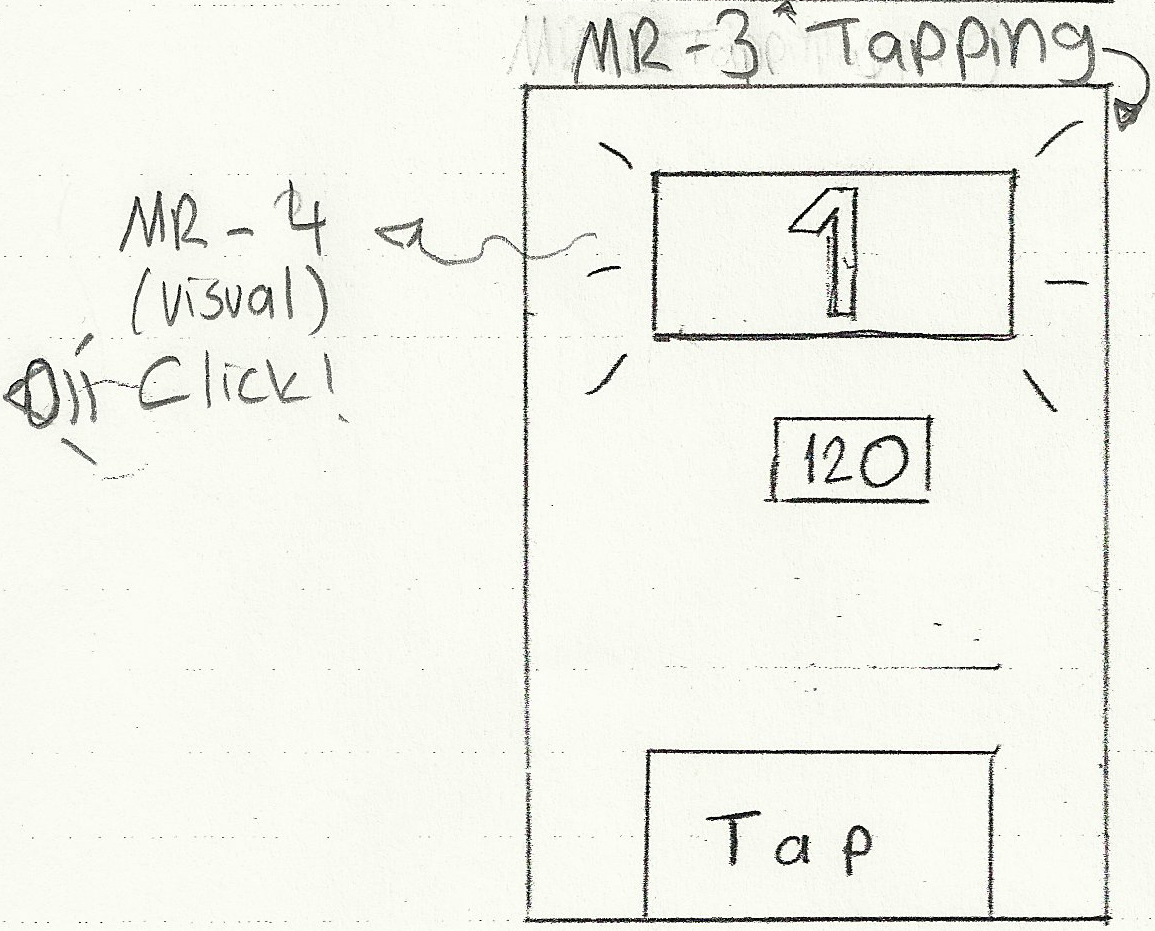 MR-3 Tapping
1
MR-4
(visual)
Click!
120
Tap